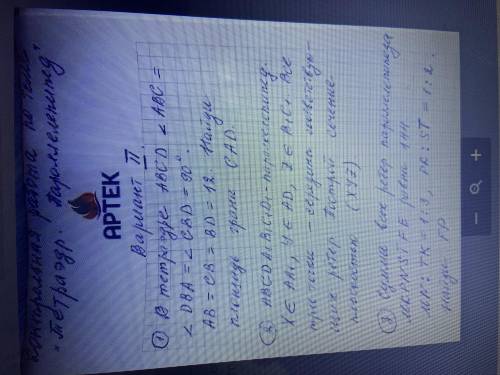 Контрольная работа по теме
"Тетраэдр. Параллелепипед"
АРТЕК
Вариант II.
① В тетраэдре ABCD ∠ABC =
∠DBA = ∠CBD = 90°.
AB = CB = BD = 12. Найди
площадь грани CAD.
② ABCDA₁B₁C₁D₁ - параллелепипед.
X ∈ AA₁, Y ∈ AD, Z ∈ B₁C₁. Все
три точки - середины соответствую-
щих ребер. Построй сечение
плоскостью (XYZ)
③ Сумма всех ребер параллелепипеда
равна 144
= 1:3, PR : ST = 1:2.
Найди